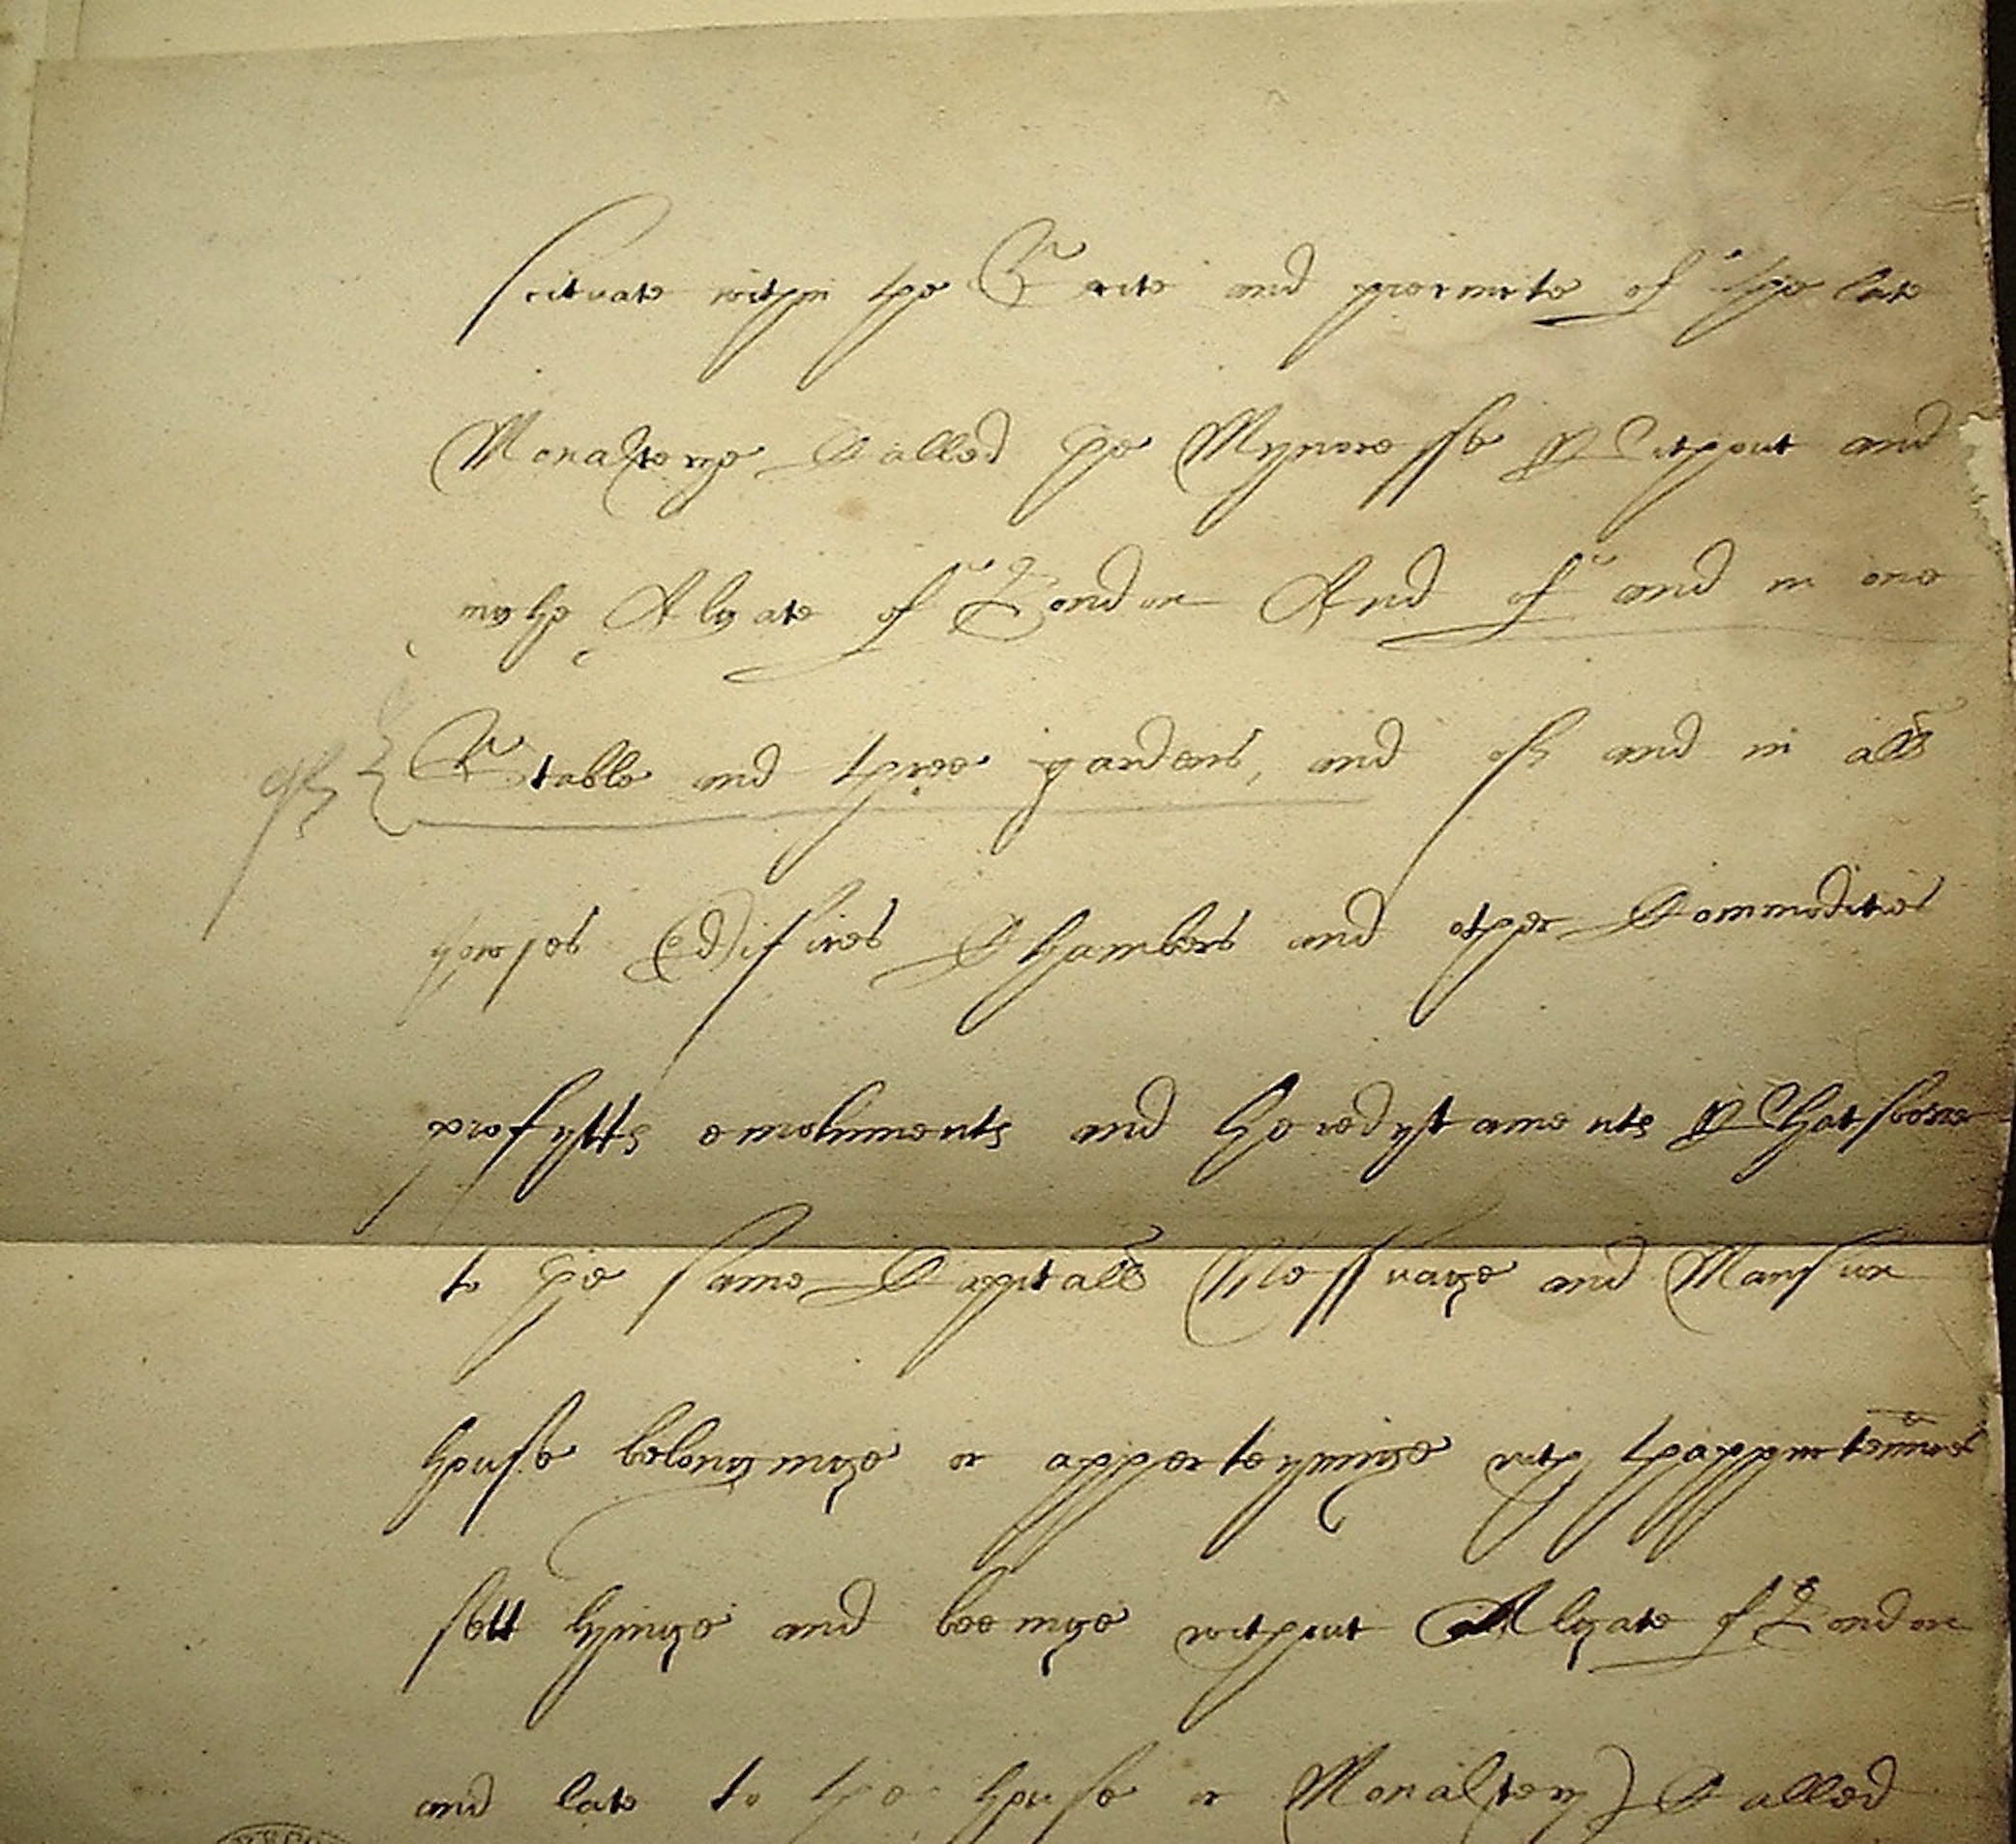 scituate within the Scite and precincte of the late
Monasterye Called the Mynoresse Without and
nyhe Algate of London And of and in one
Stable and three gardens, and of and in all
howses Edifices Chambers and other Commodities
profytts emoluments and heredytaments Whatsoever
to the same Capitall Messuage and Mansion
house belonginge or apperteyninge with thappurtennces
sett lyinge and beeinge without Algate of London
and late to the house or Monastery Called